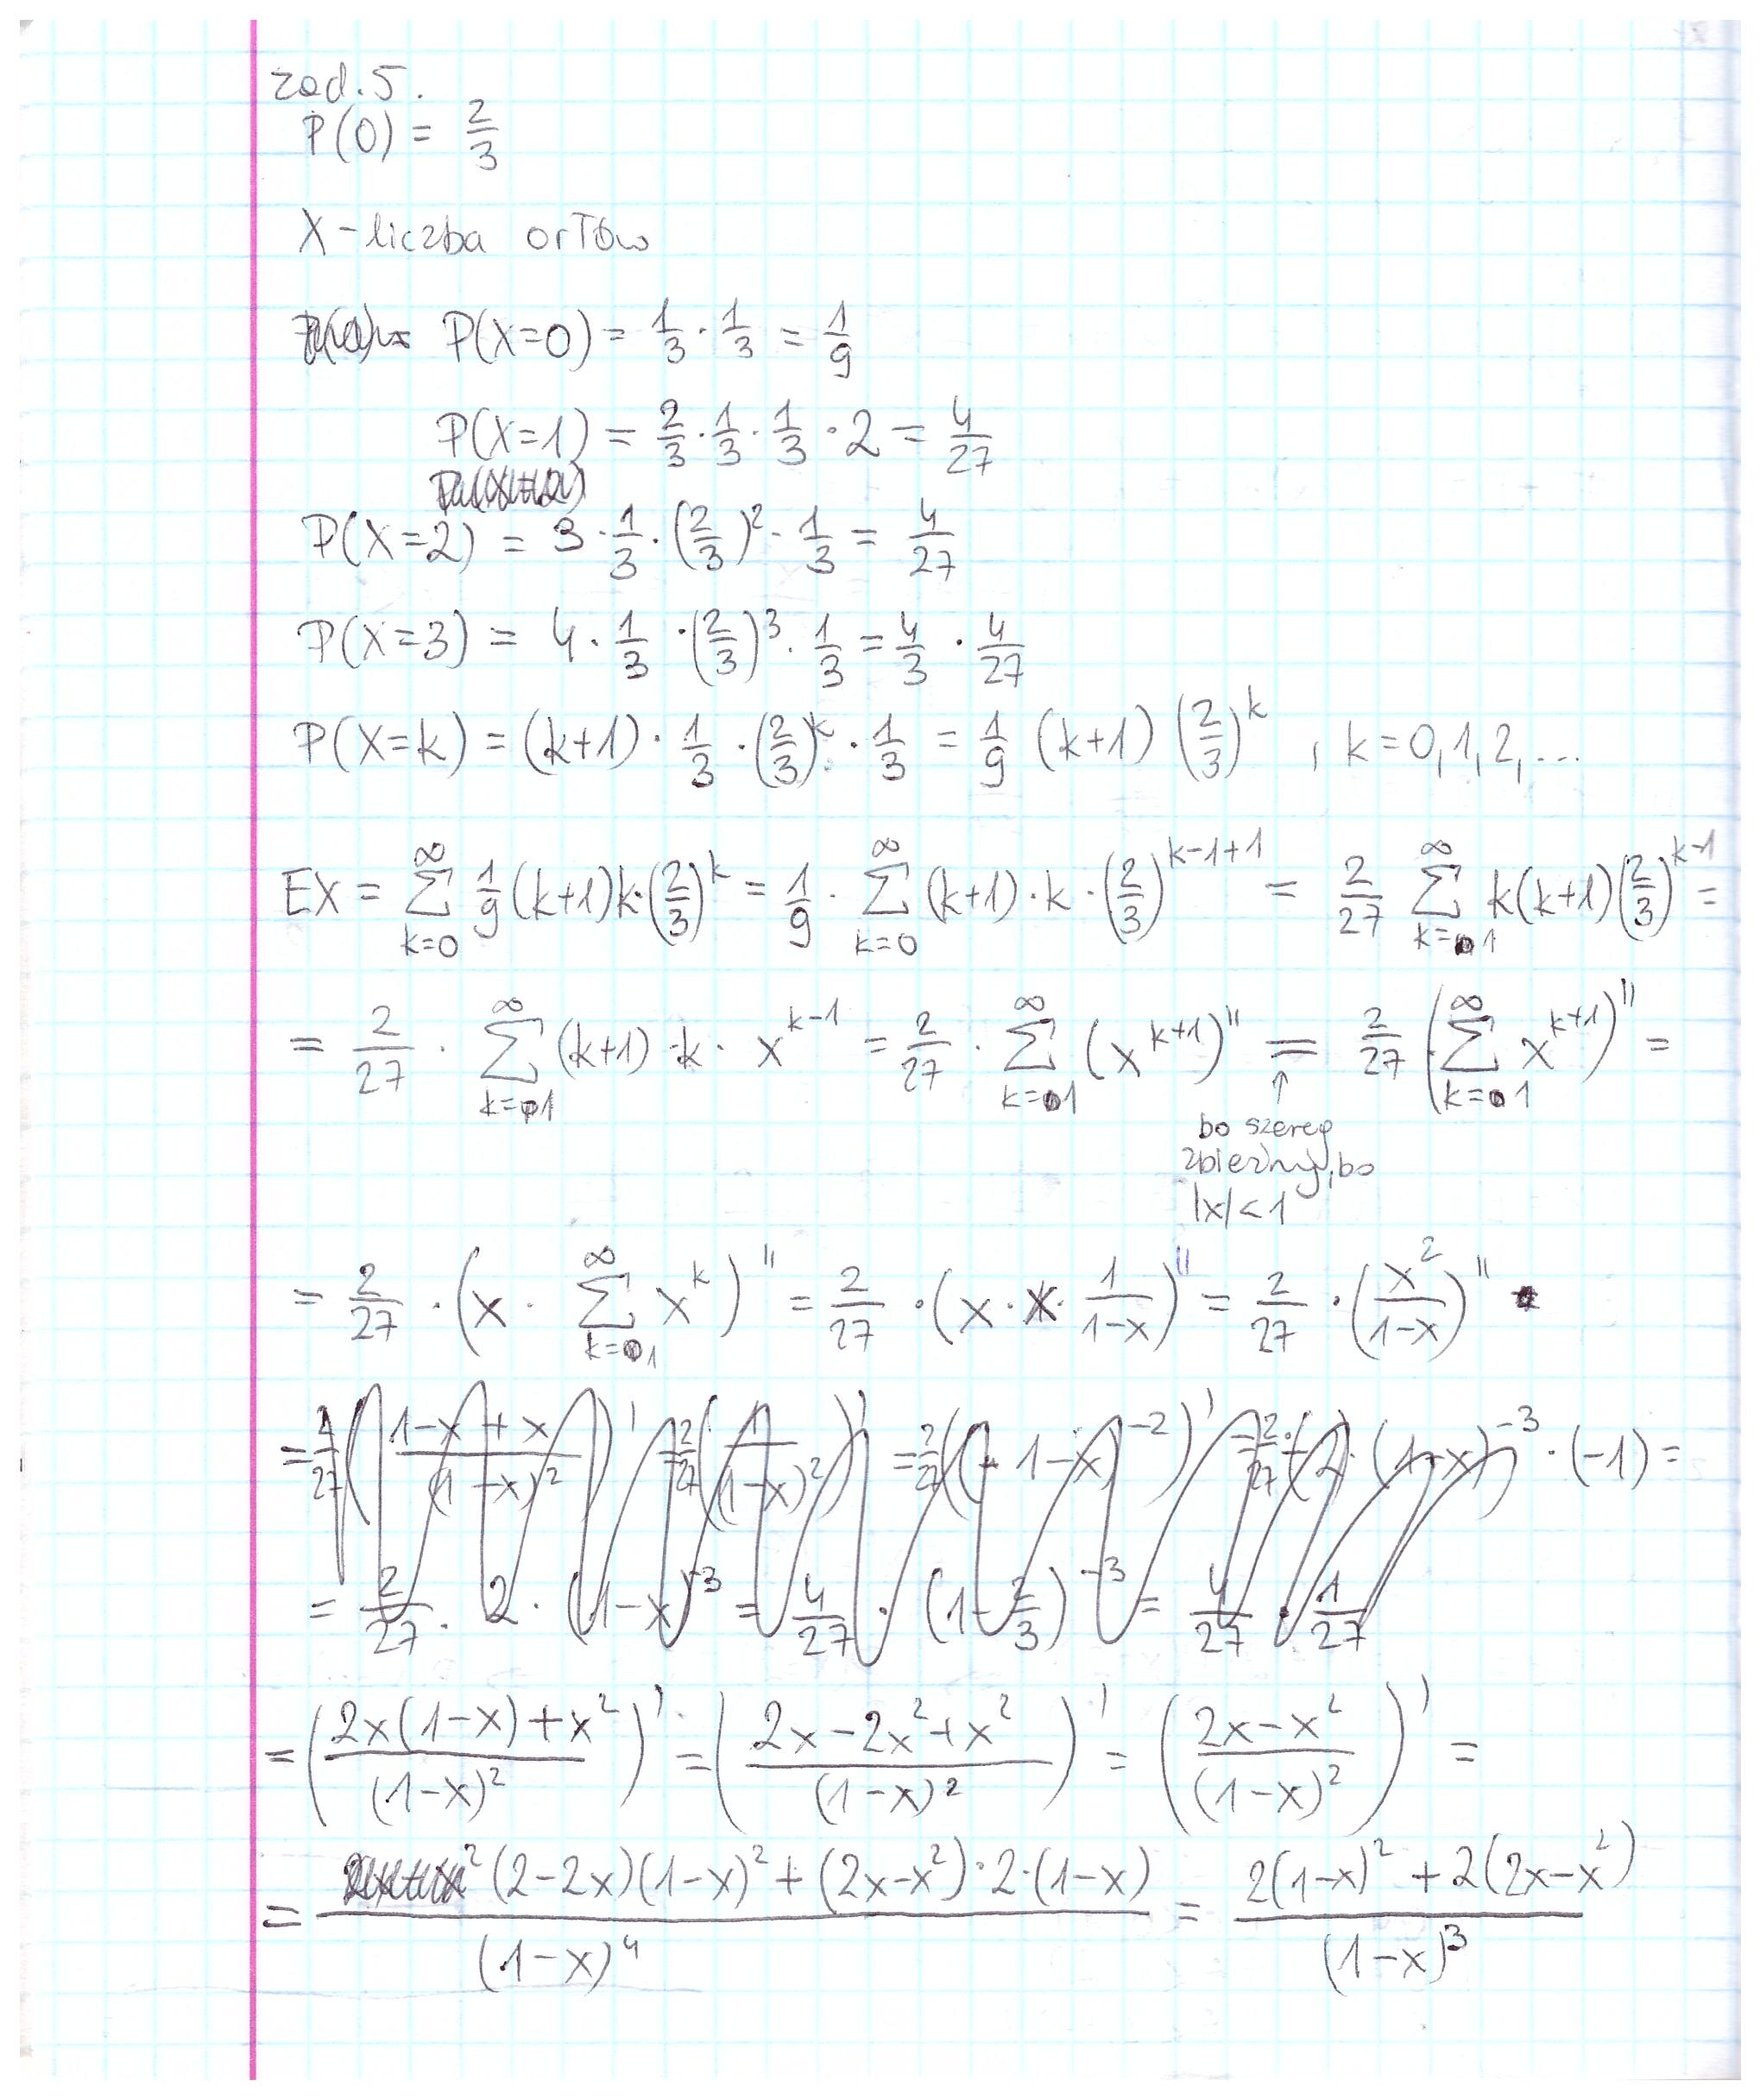 zad. 5.
P(O) = 2/3
X - liczba orłów
P(X=0) = 1/3 · 1/3 = 1/9
P(X=1) = 2/3 · 1/3 · 1/3 · 2 = 4/27
P(X=2) = 3 · 1/3 · (2/3)² · 1/3 = 4/27
P(X=3) = 4 · 1/3 · (2/3)³ · 1/3 = 4/3 · 4/27
P(X=k) = (k+1) · 1/3 · (2/3)^k · 1/3 = 1/9 (k+1) (2/3)^k , k=0,1,2,...
EX = ∑_{k=0}^{∞} 1/9 (k+1)k·(2/3)^k = 1/9 · ∑_{k=0}^{∞} (k+1)·k·(2/3)^{k-1+1} = 2/27 ∑_{k=1}^{∞} k(k+1)(2/3)^{k-1} =
= 2/27 · ∑_{k=1}^{∞} (k+1)·k· x^{k-1} = 2/27 · ∑_{k=1}^{∞} (x^{k+1})'' = 2/27 (∑_{k=1}^{∞} x^{k+1})'' =
↑
bo szereg
zbieżny, bo
|x|<1
= 2/27 · (x · ∑_{k=1}^{∞} x^k)'' = 2/27 · (x · x · 1/(1-x))'' = 2/27 · (x²/(1-x))''
= 2/27 ((1-x+x)/(1-x)²)' = 2/27 (1/(1-x)²)' = 2/27 ((1-x)^{-2})' = 2/27 · (-2) · (1-x)^{-3} · (-1) =
= 2/27 · 2 · (1-x)^{-3} = 4/27 · (1-2/3)^{-3} = 4/27 · 1/27
= ((2x(1-x)+x²)/(1-x)²)' = ((2x-2x²+x²)/(1-x)²)' = ((2x-x²)/(1-x)²)' =
= ((2-2x)(1-x)²+(2x-x²)·2·(1-x))/(1-x)⁴ = (2(1-x)²+2(2x-x²))/(1-x)³